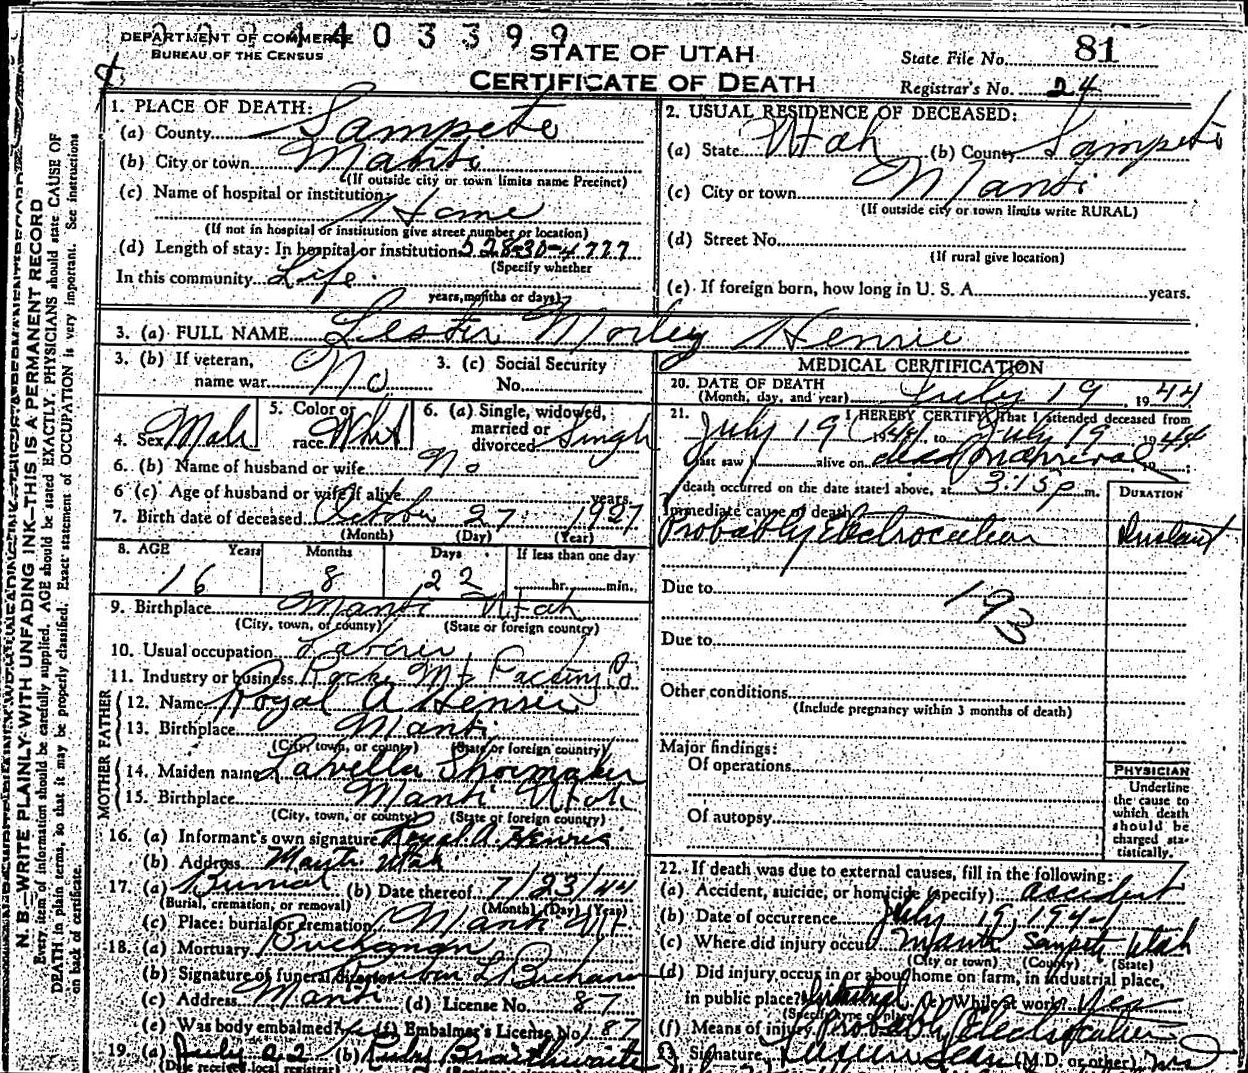 DEPARTMENT OF COMMERCE
BUREAU OF THE CENSUS
4403399
STATE OF UTAH
CERTIFICATE OF DEATH
State File No. 81
Registrar's No. 24
N. B.—WRITE PLAINLY WITH UNFADING INK—THIS IS A PERMANENT RECORD
Every item of information should be carefully supplied. AGE should be stated EXACTLY. PHYSICIANS should state CAUSE OF
DEATH in plain terms, so that it may be properly classified. Exact statement of OCCUPATION is very important. See instructions
on back of certificate.
1. PLACE OF DEATH:
(a) County Sampete
(b) City or town Manti
(If outside city or town limits name Precinct)
(c) Name of hospital or institution
Home
(If not in hospital or institution give street number or location)
(d) Length of stay: In hospital or institution 528-30-4777
(Specify whether
In this community Life
years, months or days)
2. USUAL RESIDENCE OF DECEASED:
(a) State Utah (b) County Sampete
(c) City or town Manti
(If outside city or town limits write RURAL)
(d) Street No.
(If rural give location)
(e) If foreign born, how long in U. S. A. years.
3. (a) FULL NAME Lester Morley Henrie
3. (b) If veteran,
name war No
3. (c) Social Security
No.
4. Sex Male
5. Color or
race White
6. (a) Single, widowed,
married or
divorced Single
6. (b) Name of husband or wife No
6 (c) Age of husband or wife if alive years.
7. Birth date of deceased October 27 1927
(Month) (Day) (Year)
8. AGE Years Months Days If less than one day
16 8 22 hr. min.
9. Birthplace Manti Utah
(City, town, or county) (State or foreign country)
10. Usual occupation Laborer
11. Industry or business Rocky Mt Packing Co
FATHER
12. Name Royal A Henrie
13. Birthplace Manti
(City, town, or county) (State or foreign country)
MOTHER
14. Maiden name Lavella Shoemaker
15. Birthplace Manti Utah
(City, town, or county) (State or foreign country)
16. (a) Informant's own signature Royal. A. Henrie
(b) Address Manti Utah
17. (a) Burial (b) Date thereof 7/23/44
(Burial, cremation, or removal) (Month) (Day) (Year)
(c) Place: burial or cremation Manti Ut.
18. (a) Mortuary Buchanan
(b) Signature of funeral director Ruben L Buchanan
(c) Address Manti (d) License No. 87
(e) Was body embalmed? Yes (f) Embalmer's License No. 187
19. (a) July 22 (b) Ruby Braithwaite
(Date received local registrar)
MEDICAL CERTIFICATION
20. DATE OF DEATH
(Month, day, and year) July 19, 1944
21. I HEREBY CERTIFY That I attended deceased from
July 19 1944, to July 19 1944
I last saw h alive on dead on arrival, 19
death occurred on the date stated above, at 3:15 p m.
DURATION
Immediate cause of death
Probably Electrocution Instant
Due to
193
Due to
Other conditions
(Include pregnancy within 3 months of death)
Major findings:
Of operations
Of autopsy
PHYSICIAN
Underline
the cause to
which death
should be
charged sta-
tistically.
22. If death was due to external causes, fill in the following:
(a) Accident, suicide, or homicide (specify) accident
(b) Date of occurrence July 19, 1944
(c) Where did injury occur Manti Sanpete Utah
(City or town) (County) (State)
(d) Did injury occur in or about home on farm, in industrial place,
in public place? Industrial (e) While at work? Yes
(Specify type of place)
(f) Means of injury Probably Electrocution
23. Signature (M.D. or other)